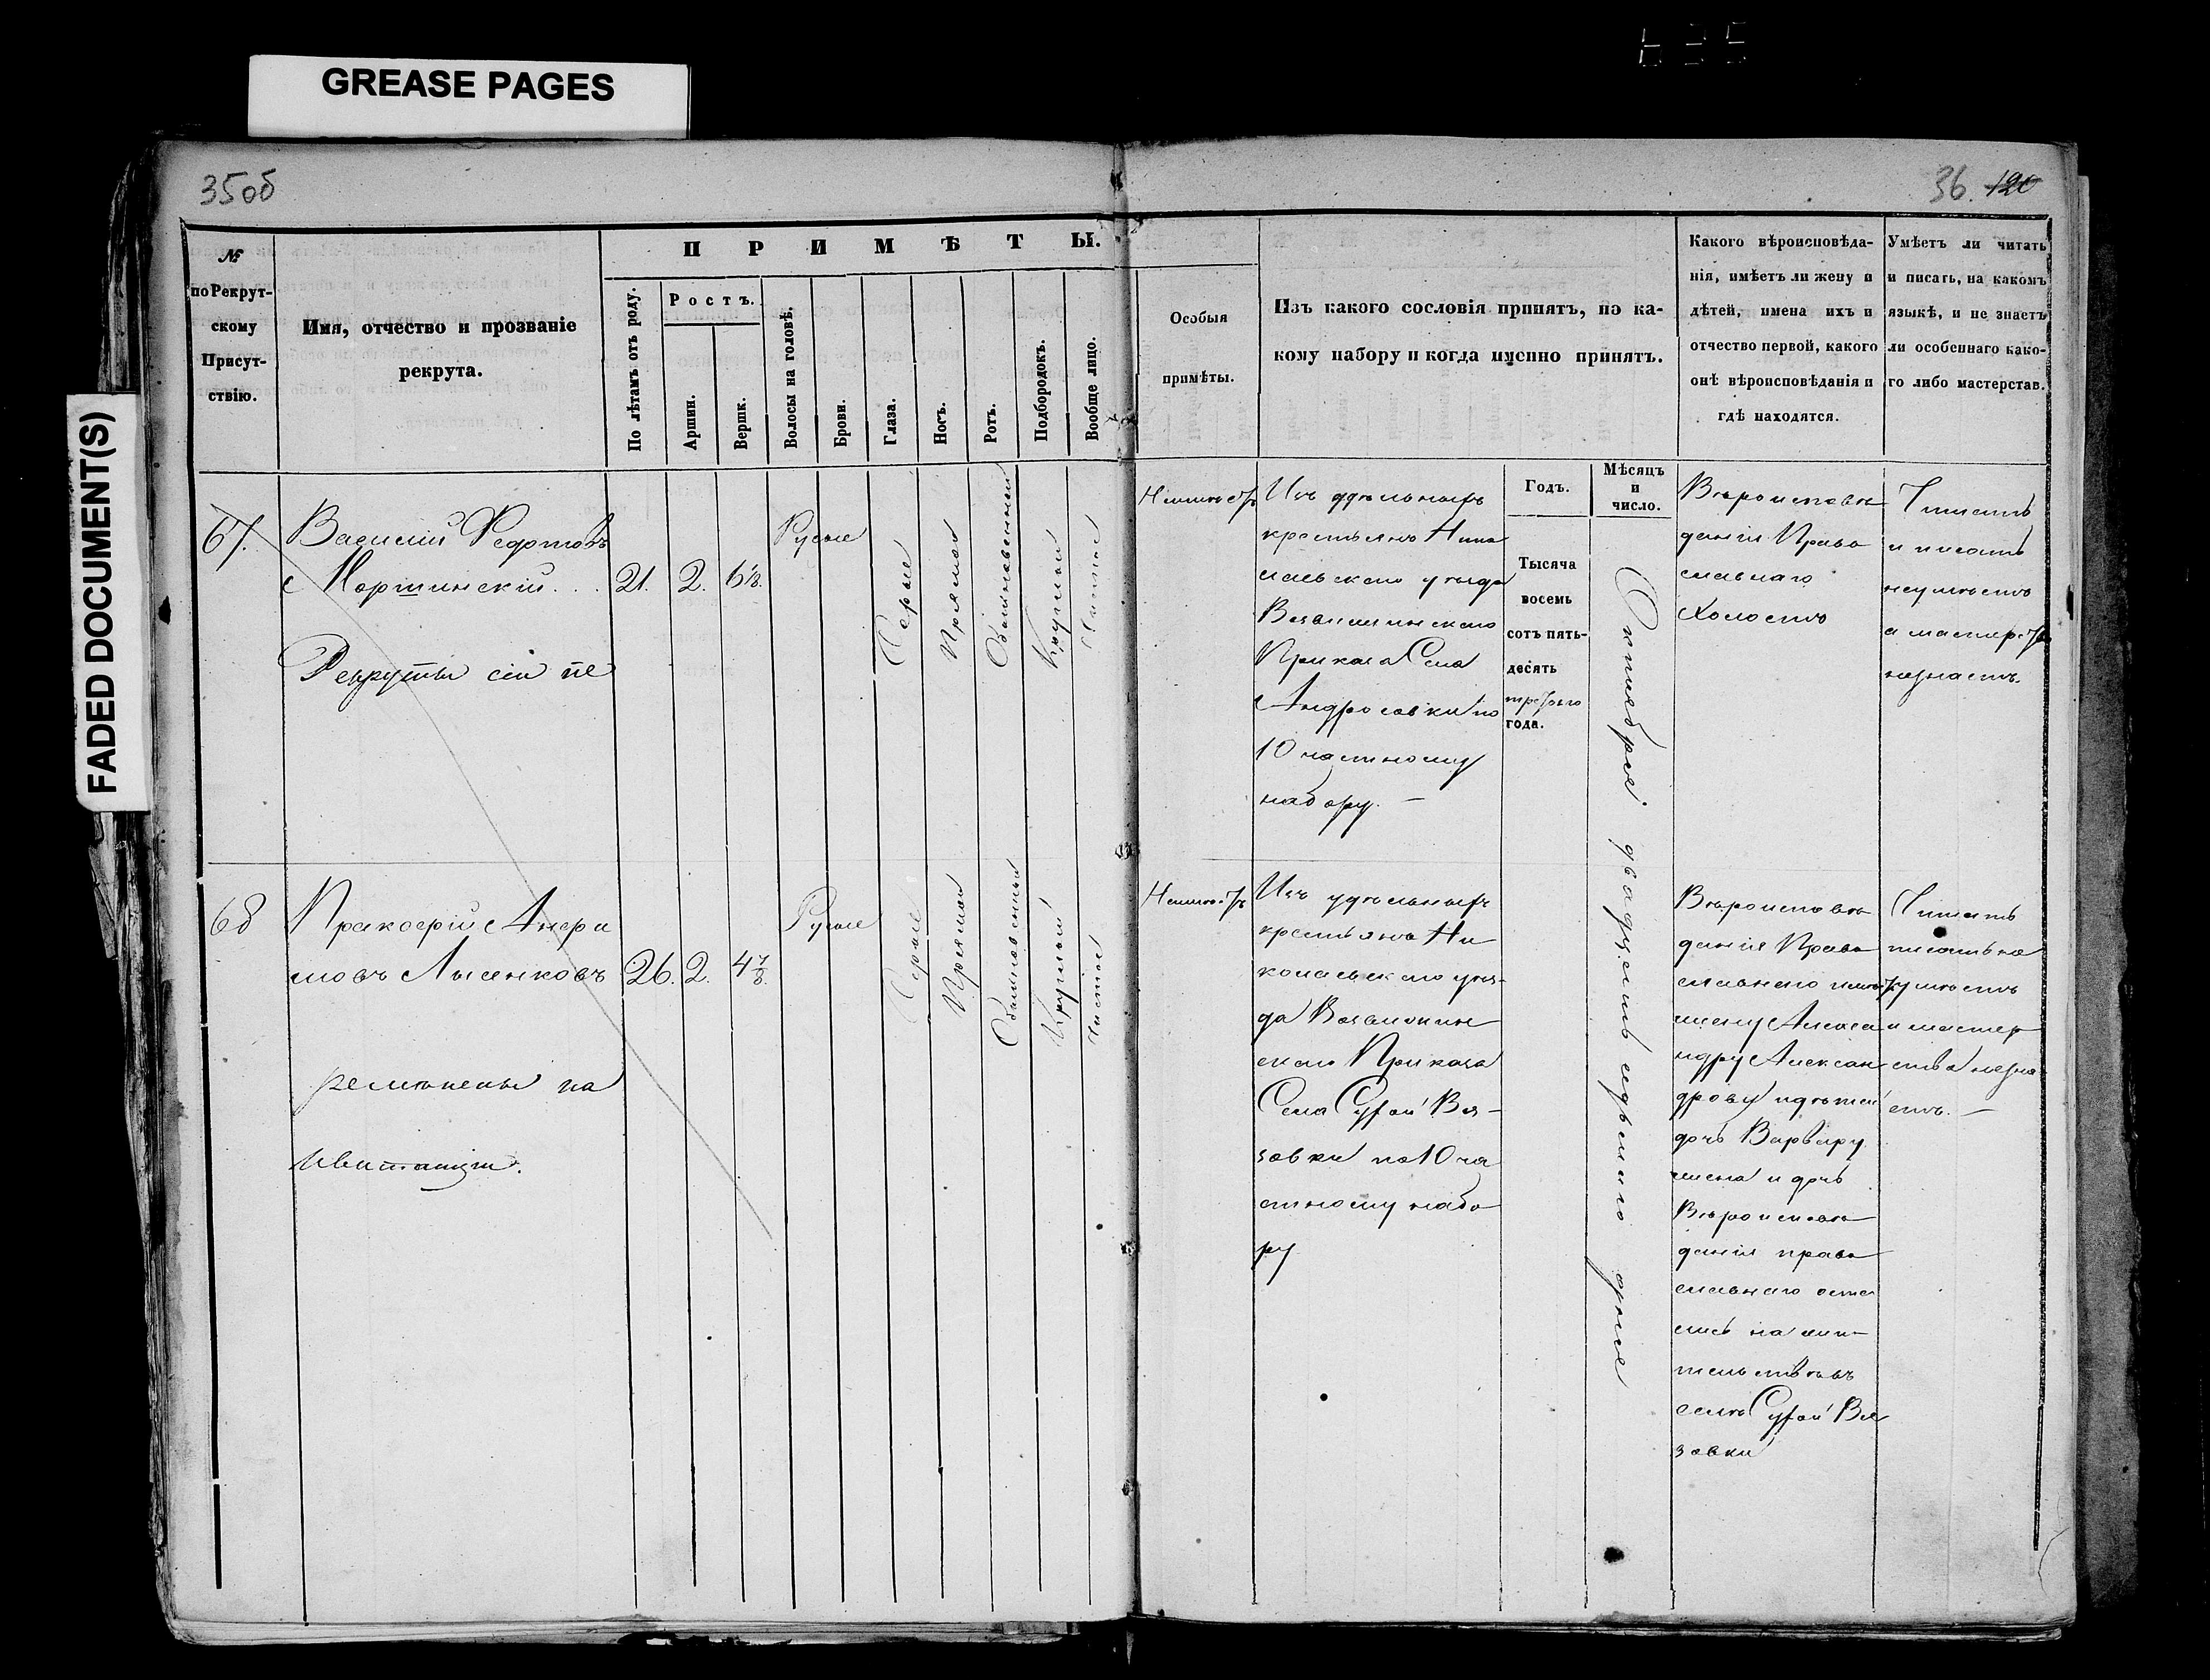 GREASE PAGES
FADED DOCUMENT(S)
35об
36. 120
№
по Рекрут-
скому
Присут-
ствію.
Имя, отчество и прозваніе
рекрута.
ПРИМѢТЫ.
По лѣтамъ отъ роду.
Ростъ.
Аршин.
Вершк.
Волосы на головѣ.
Брови.
Глаза.
Носъ.
Ротъ.
Подбородокъ.
Вообще лицо.
Особыя
примѣты.
Изъ какого сословія принятъ, по ка-
кому набору и когда именно принятъ.
Какого вѣроисповѣда-
нія, имѣетъ ли жену и
дѣтей, имена ихъ и
отчество первой, какого
онѣ вѣроисповѣданія и
гдѣ находятся.
Умѣетъ ли читать
и писать, на какомъ
языкѣ, и не знаетъ
ли особеннаго како-
го либо мастерства.
Годъ.
Мѣсяцъ
и
число.
67.
Василий Федотовъ
Мартинскій...
21.
2.
6 1/8.
Русые
Серые
Прямой
Обыкновенный
Круглой
Чистое
Рекруты сіи пе
Изъ удѣльныхъ
крестьянъ Нико
лаевскаго уѣзда
Приказа Села
Андросовки по
10 частному
набору. —
Тысяча
восемь
сотъ пять-
десять
третьяго
года.
Октября двадцать седьмого дня
Вѣроисповѣ
данія Право
славнаго
Холостъ
Читать
и писать
неумѣетъ
а мастер
незнаетъ.
68
Пракофій Анфи
ловъ Лысенковъ
26.
2.
4 7/8.
Русые
Серые
Прямой
Обыкновенный
Круглый
Чистое
ремѣнены на
квитанціи.
Изъ удѣльныхъ
крестьянъ Ни
колаевскаго уѣз-
да
скаго Приказа
Села Сухой Вя-
зовки по 10 ча
стному набо
ру
Вѣроисповѣ
данія Право
славнаго
жену Алекса
ндру Алексан
дрову и дѣтей
дочь Варвару
жена и дочь
Вѣроисповѣ
данія право
славнаго оста
лись на жи-
тельстве въ
селѣ Сухой Вя
зовки
Читать
писать не
умѣетъ
и мастер
ства незна
етъ. —